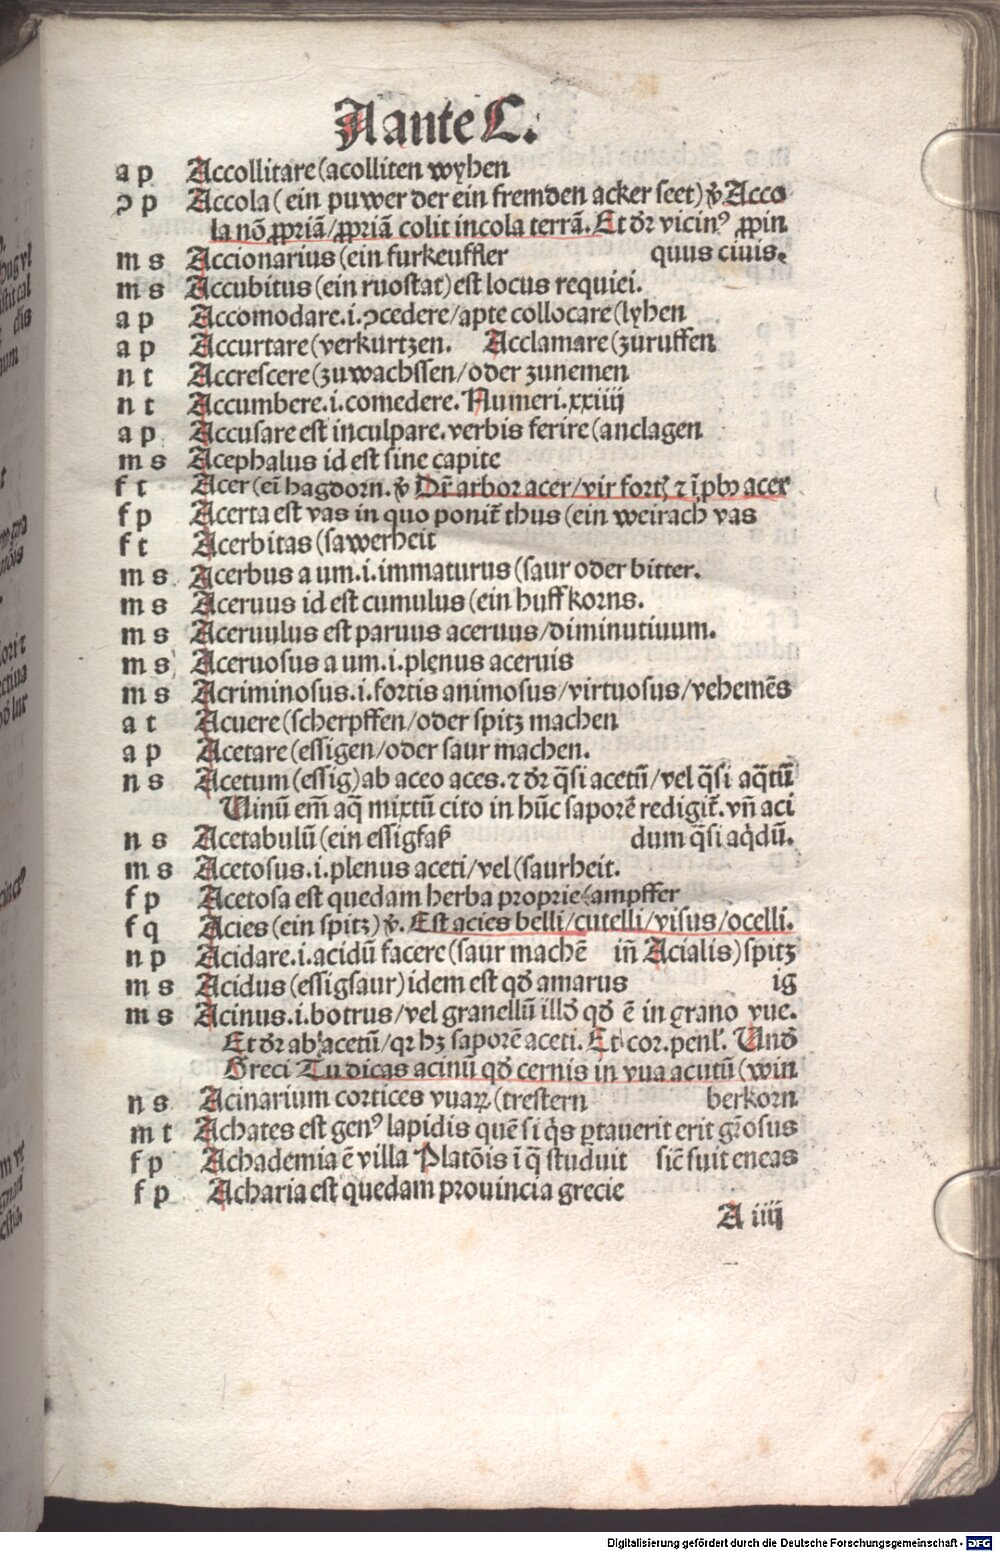 A ante C.
a p Accollitare (acolliten wyhen
ꝯ p Accola (ein puwer der ein fremden acker seet) ꝟ Acco
la nō ꝓpriā / ꝓpriā colit incola terrā. Et dr̄ vicinꝰ ꝓpin
m s Accionarius (ein furkeuffler quus ciuis.
m s Accubitus (ein ruostat) est locus requiei.
a p Accomodare .i. ꝯcedere / apte collocare (lyhen
a p Accurtare (verkurtzen. Acclamare (zuruffen
n t Accrescere (zuwachssen / oder zunemen
n t Accumbere .i. comedere. Numeri. xxiiij
a p Accusare est inculpare. verbis ferire (anclagen
m s Acephalus id est sine capite
f t Acer (eī hagdorn. ꝟ Dr̄ arbor acer / vir fortꝭ ⁊ īpbꝫ acer
f p Acerta est vas in quo ponit̄ thus (ein weirach vas
f t Acerbitas (sawerheit
m s Acerbus a um .i. immaturus (saur oder bitter.
m s Aceruus id est cumulus (ein huff korns.
m s Aceruulus est paruus aceruus / diminutiuum.
m s Aceruosus a um .i. plenus aceruis
m s Acriminosus .i. fortis animosus / virtuosus / vehemēs
a t Acuere (scherpffen / oder spitz machen
a p Acetare (essigen / oder saur machen.
n s Acetum (essig) ab aceo aces. ⁊ dr̄ q̄si acetū / vel q̄si aq̄tū
Uinū em̄ aq̄ mixtū cito in hūc saporē redigit̄. vn̄ aci
n s Acetabulū (ein essigfaß dum q̄si aq̇dū.
m s Acetosus .i. plenus aceti / vel (saurheit.
f p Acetosa est quedam herba proprie (ampffer
f q Acies (ein spitz) ꝟ. Est acies belli / cutelli / visus / ocelli.
n p Acidare .i. acidū facere (saur machē in̄ Acialis) spitz
m s Acidus (essigsaur) idem est qd̄ amarus ig
m s Acinus .i. botrus / vel granellū illd̄ qd̄ ē in grano vue.
Et dr̄ ab acetū / qꝛ hꝫ saporē aceti. Et cor. penl̄. Und̄
Greci Tu dicas acinū qd̄ cernis in vua acutū (win
n s Acinarium cortices vuaꝝ (trestern berkorn
m t Achates est genꝰ lapidis quē si q̇s ꝑtauerit erit gr̄osus
f p Achademia ē villa Platōis ī q̄ studuit sic̄ fuit eneas
f p Acharia est quedam prouincia grecie
A iiij
Digitalisierung gefördert durch die Deutsche Forschungsgemeinschaft - DFG